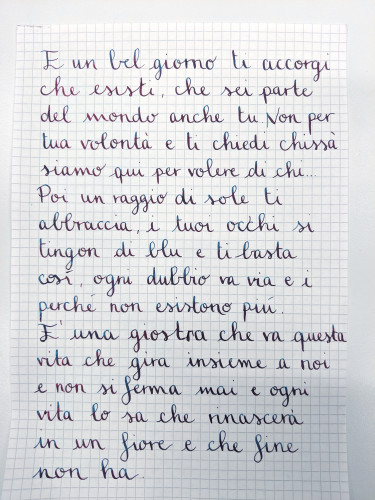 E un bel giorno ti accorgi
che esisti, che sei parte
del mondo anche tu Non per
tua volontà e ti chiedi chissà
siamo qui per volere di chi...
Poi un raggio di sole ti
abbraccia, i tuoi occhi si
tingon di blu e ti basta
così, ogni dubbio va via e i
perché non esistono più.
E' una giostra che va questa
vita che gira insieme a noi
e non si ferma mai e ogni
vita lo sa che rinascerà
in un fiore e che fine
non ha.